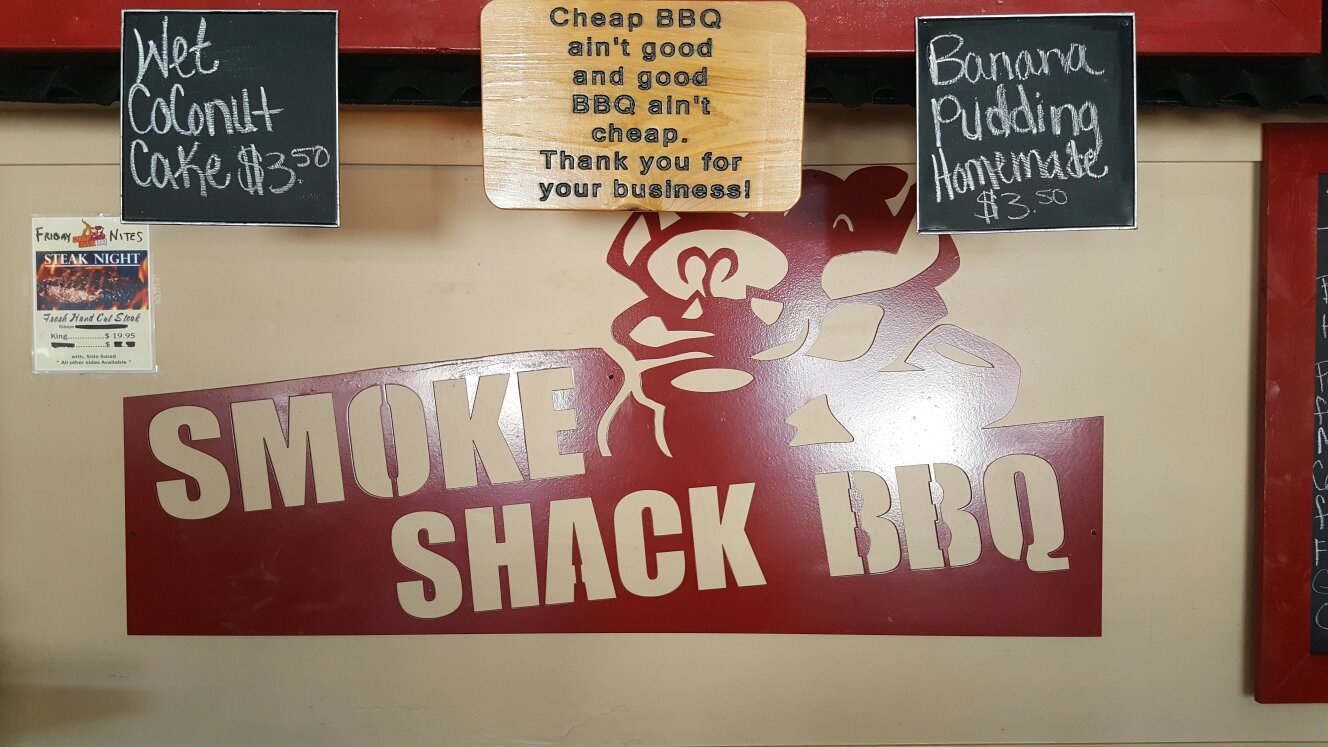 Wet
Coconut
Cake $3.50
Cheap BBQ
ain't good
and good
BBQ ain't
cheap.
Thank you for
your business!
Banana
Pudding
Homemade
$3.50
FRIDAY NITES
STEAK NIGHT
Fresh Hand Cut Steak
Ribeye
King..............$ 19.95
with, Side Salad
" All other sides Available "
SMOKE
SHACK BBQ